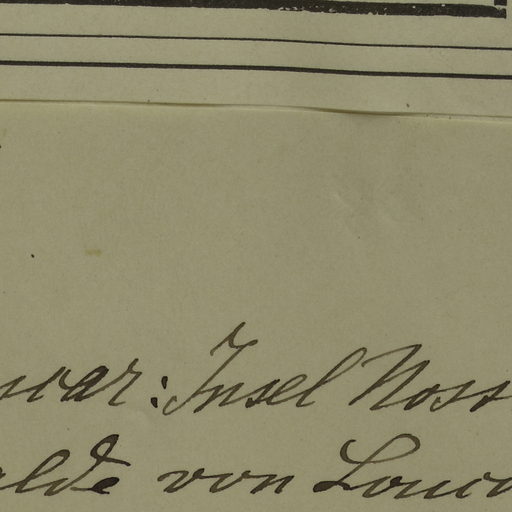 scar: Insel Noss
alde von Louco